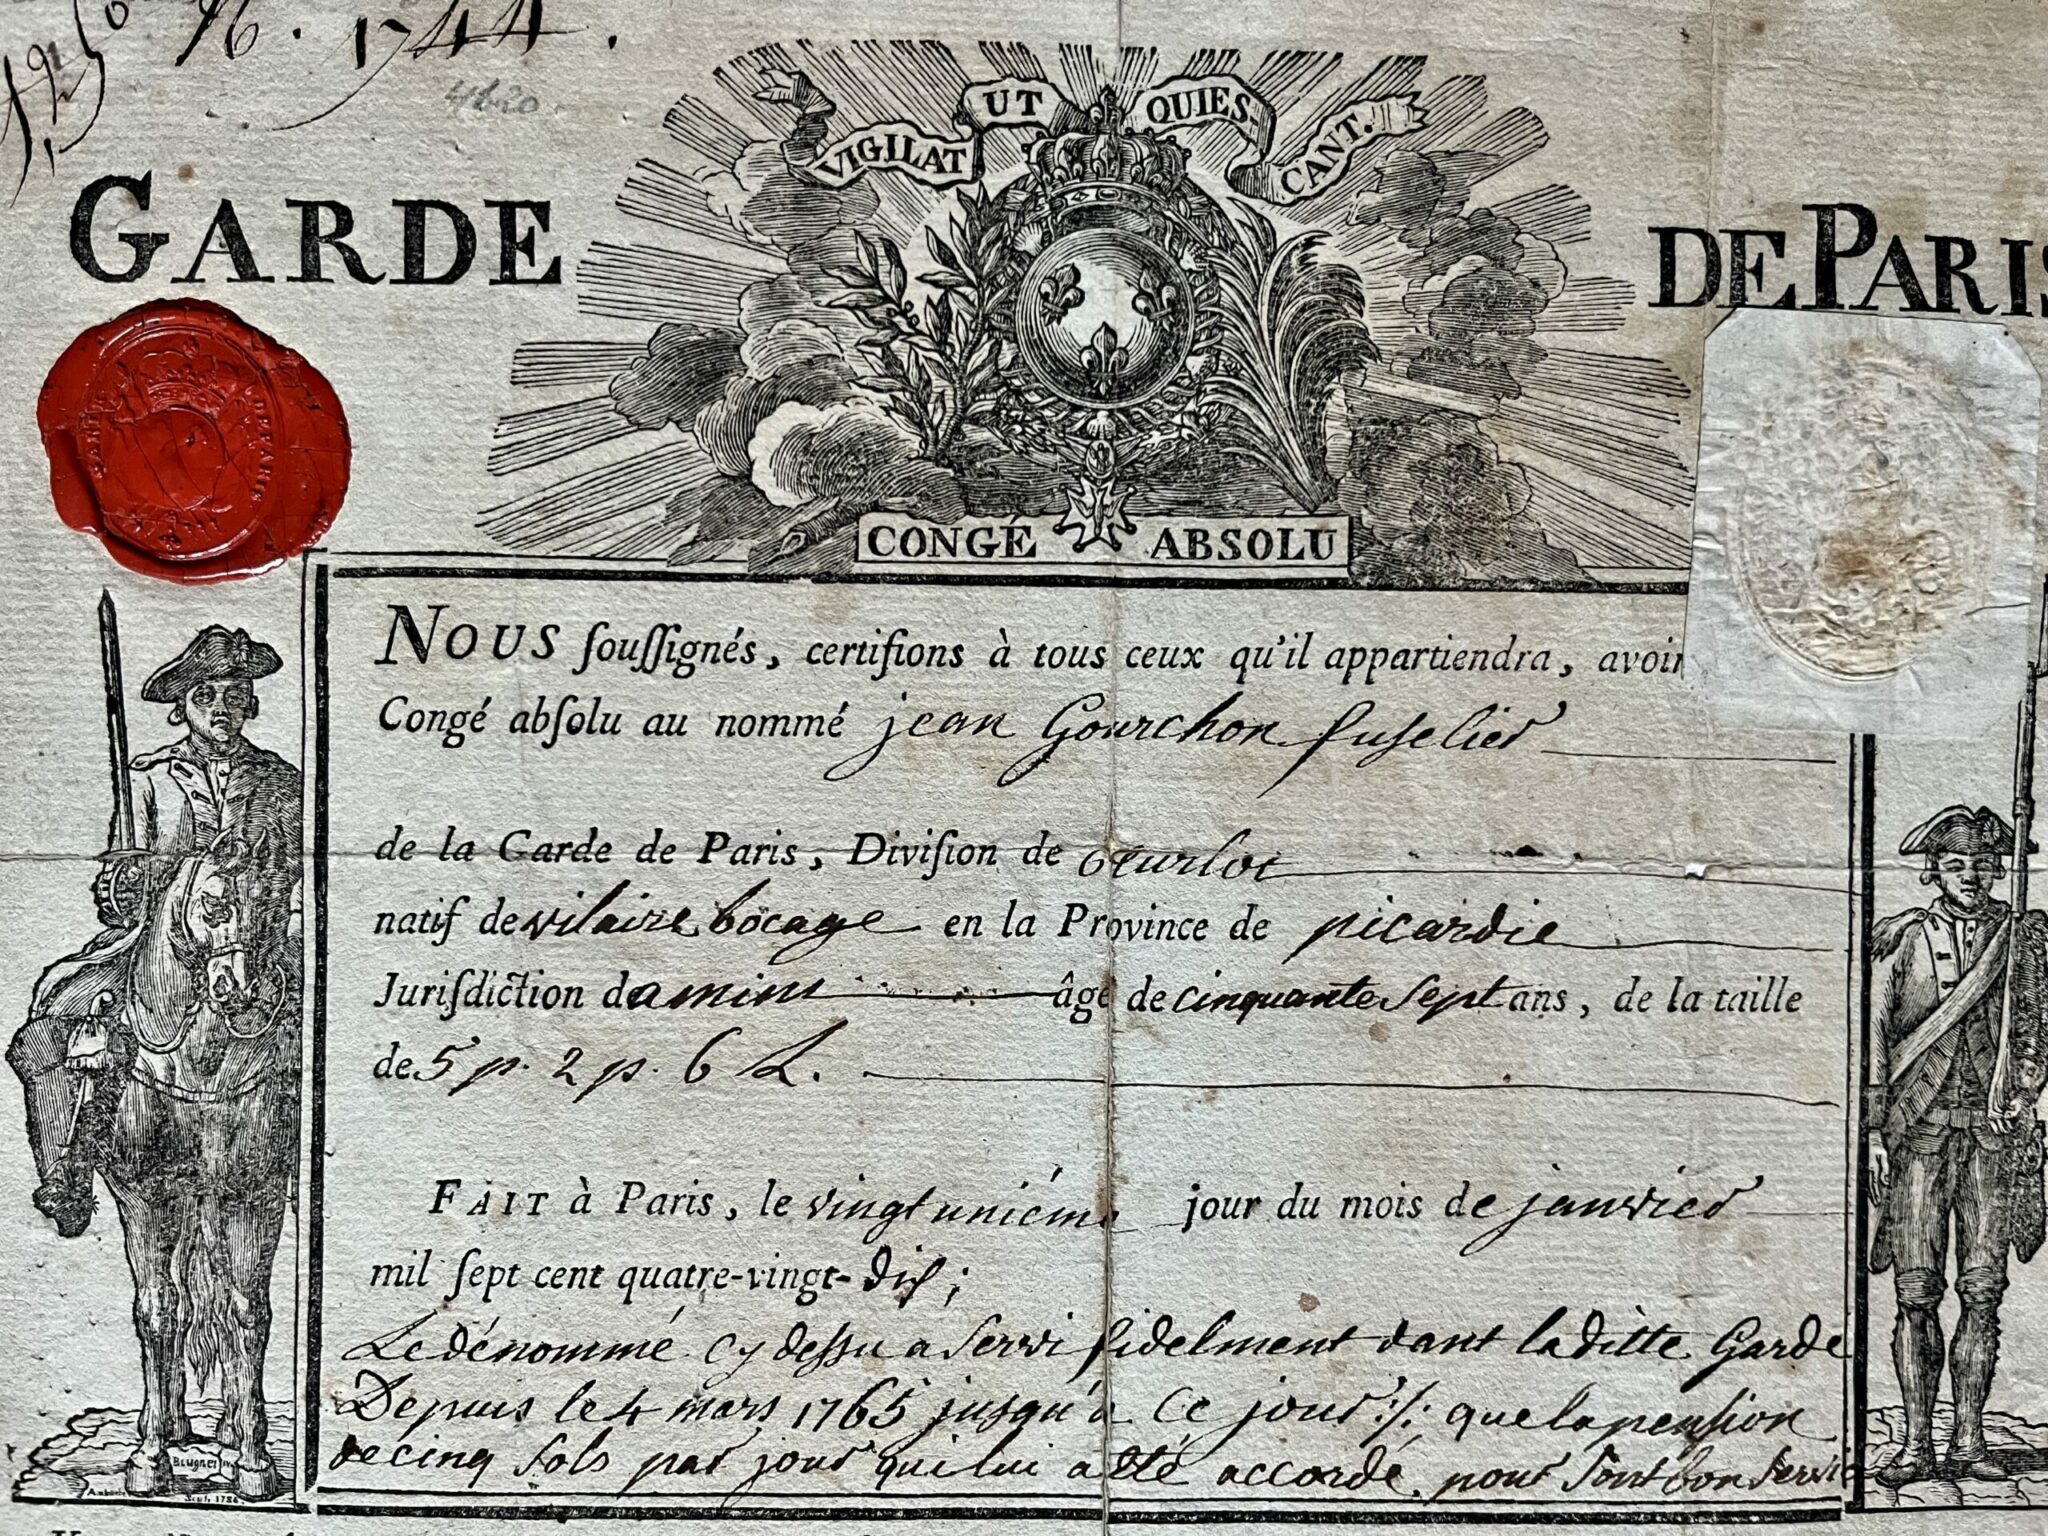 N. 1744.
VIGILAT UT QUIES-
CANT.
GARDE DE PARIS
CONGÉ ABSOLU
NOUS souſſignés, certifions à tous ceux qu'il appartiendra, avoir
Congé abſolu au nommé jean Gourchon fuselier
de la Garde de Paris, Diviſion de
natif de vilaire bocage en la Province de picardie
Jurisdiction damiens âgé de cinquante sept ans, de la taille
de 5 p. 2 p. 6 L.
FAIT à Paris, le vingt uniéme jour du mois de janvier
mil ſept cent quatre-vingt-dix;
Le dénommé cy dessu a servi fidelment dant laditte Garde
Depuis le 4 mars 1765 jusqu'a Ce jour :/: que la pension
de cinq sols par jour qui lui a été accordé pour sont bon servi